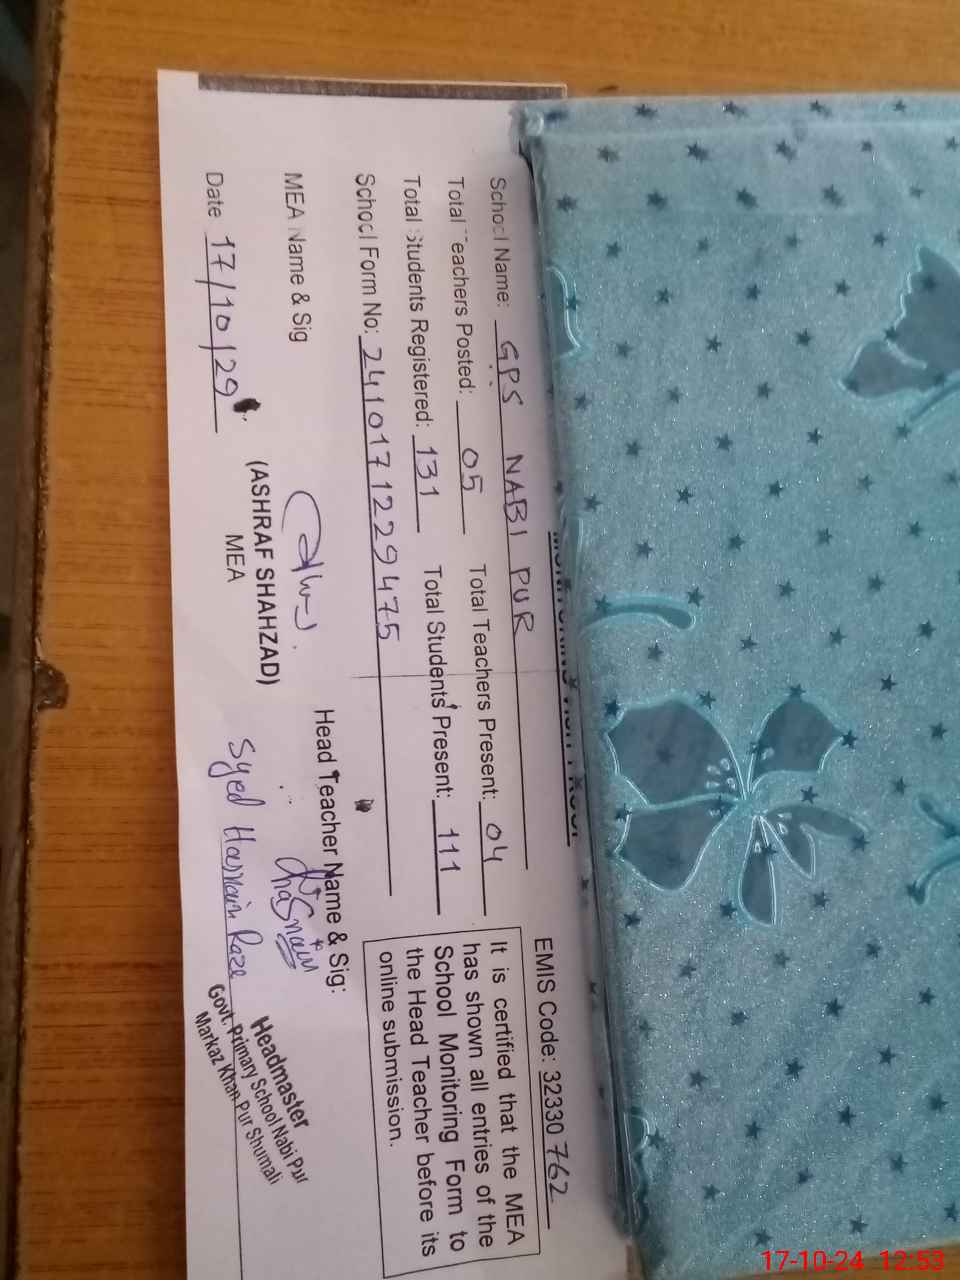 MONITORING VISIT PROOF
School Name: GPS NABI PUR EMIS Code: 32330762
Total Teachers Posted: 05 Total Teachers Present: 04
Total Students Registered: 131 Total Students Present: 111
School Form No: 241017122947 5
It is certified that the MEA
has shown all entries of the
School Monitoring Form to
the Head Teacher before its
online submission.
MEA Name & Sig
Head Teacher Name & Sig:
(ASHRAF SHAHZAD)
MEA
Hasnain
Syed Hasnain Raza
Headmaster
Govt. Primary School Nabi Pur
Markaz Khan Pur Shumali
Date 17/10/29
17-10-24 12:53